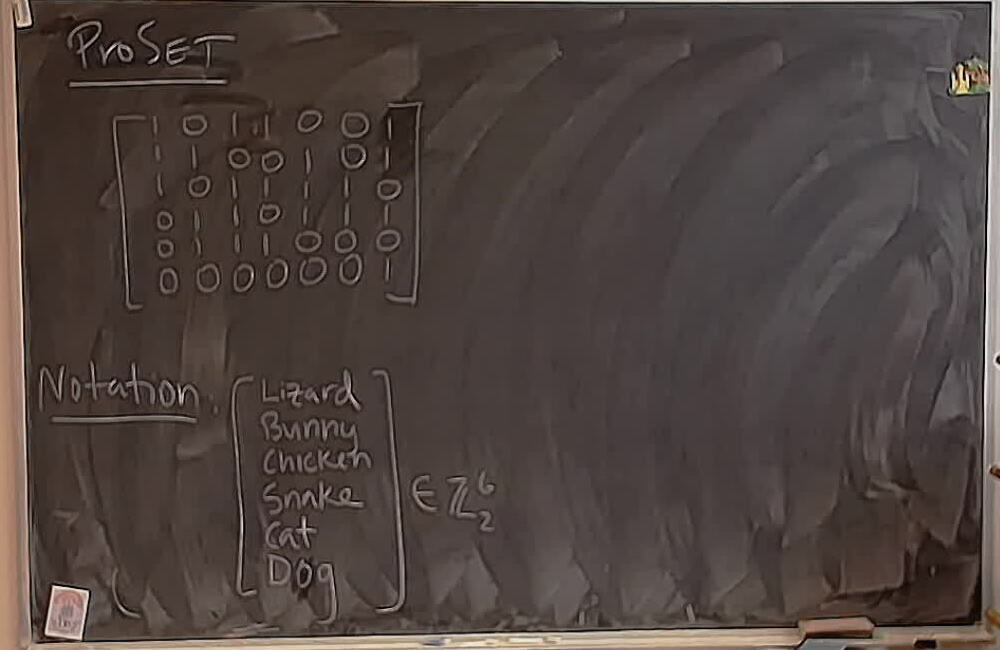 ProSET
1 0 1 1 0 0 1
1 1 0 0 1 0 1
1 0 1 1 1 1 0
0 1 1 0 1 1 1
0 1 1 1 0 0 0
0 0 0 0 0 0 1
Notation: [Lizard
Bunny
Chicken
Snake
Cat
Dog] ∈ ℤ₂⁶